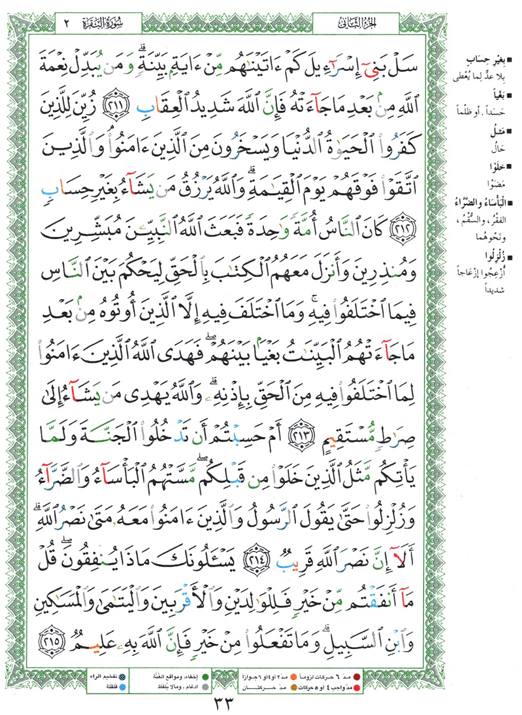 الجزء الثاني
سورة البقرة ٢
سَلْ بَنِىٓ إِسْرَٰٓءِيلَ كَمْ ءَاتَيْنَٰهُم مِّنْ ءَايَةٍۭ بَيِّنَةٍۗ وَمَن يُبَدِّلْ نِعْمَةَ
ٱللَّهِ مِنۢ بَعْدِ مَا جَآءَتْهُ فَإِنَّ ٱللَّهَ شَدِيدُ ٱلْعِقَابِ ﴿٢١١﴾ زُيِّنَ لِلَّذِينَ
كَفَرُوا۟ ٱلْحَيَوٰةُ ٱلدُّنْيَا وَيَسْخَرُونَ مِنَ ٱلَّذِينَ ءَامَنُوا۟ۘ وَٱلَّذِينَ
ٱتَّقَوْا۟ فَوْقَهُمْ يَوْمَ ٱلْقِيَٰمَةِۗ وَٱللَّهُ يَرْزُقُ مَن يَشَآءُ بِغَيْرِ حِسَابٍ
﴿٢١٢﴾ كَانَ ٱلنَّاسُ أُمَّةً وَٰحِدَةً فَبَعَثَ ٱللَّهُ ٱلنَّبِيِّـۧنَ مُبَشِّرِينَ
وَمُنذِرِينَ وَأَنزَلَ مَعَهُمُ ٱلْكِتَٰبَ بِٱلْحَقِّ لِيَحْكُمَ بَيْنَ ٱلنَّاسِ
فِيمَا ٱخْتَلَفُوا۟ فِيهِۚ وَمَا ٱخْتَلَفَ فِيهِ إِلَّا ٱلَّذِينَ أُوتُوهُ مِنۢ بَعْدِ
مَا جَآءَتْهُمُ ٱلْبَيِّنَٰتُ بَغْيًۢا بَيْنَهُمْۖ فَهَدَى ٱللَّهُ ٱلَّذِينَ ءَامَنُوا۟
لِمَا ٱخْتَلَفُوا۟ فِيهِ مِنَ ٱلْحَقِّ بِإِذْنِهِۦۗ وَٱللَّهُ يَهْدِى مَن يَشَآءُ إِلَىٰ
صِرَٰطٍ مُّسْتَقِيمٍ ﴿٢١٣﴾ أَمْ حَسِبْتُمْ أَن تَدْخُلُوا۟ ٱلْجَنَّةَ وَلَمَّا
يَأْتِكُم مَّثَلُ ٱلَّذِينَ خَلَوْا۟ مِن قَبْلِكُمۖ مَّسَّتْهُمُ ٱلْبَأْسَآءُ وَٱلضَّرَّآءُ
وَزُلْزِلُوا۟ حَتَّىٰ يَقُولَ ٱلرَّسُولُ وَٱلَّذِينَ ءَامَنُوا۟ مَعَهُۥ مَتَىٰ نَصْرُ ٱللَّهِۗ
أَلَآ إِنَّ نَصْرَ ٱللَّهِ قَرِيبٌ ﴿٢١٤﴾ يَسْـَٔلُونَكَ مَاذَا يُنفِقُونَۖ قُلْ
مَآ أَنفَقْتُم مِّنْ خَيْرٍ فَلِلْوَٰلِدَيْنِ وَٱلْأَقْرَبِينَ وَٱلْيَتَٰمَىٰ وَٱلْمَسَٰكِينِ
وَٱبْنِ ٱلسَّبِيلِۗ وَمَا تَفْعَلُوا۟ مِنْ خَيْرٍ فَإِنَّ ٱللَّهَ بِهِۦ عَلِيمٌ ﴿٢١٥﴾
■ بِغَيْرِ حِسَابٍ
بلا عدٍّ لما يُعْطى
■ بَغْياً
حَسَداً ، أو ظلماً
■ مَثَلُ
حَالُ
■ خَلَوْا
مَضَوْا
■ الْبَأْسَاءُ والضَّرَّاءُ
الفَقْرُ ، والسُّقْمُ ،
ونَحْوهُما
■ زُلْزِلُوا
أُزْعِجُوا إزْعَاجاً
شديداً
مد ٦ حركات لزوماً ● مد ٢ أو ٤ أو ٦ جوازاً
مد واجب ٤ أو ٥ حركات ● مد حركتان
إخفاء، ومواقع الغنة
إدغام ، وما لا يلفظ
تفخيم الراء
قلقلة
٣٣